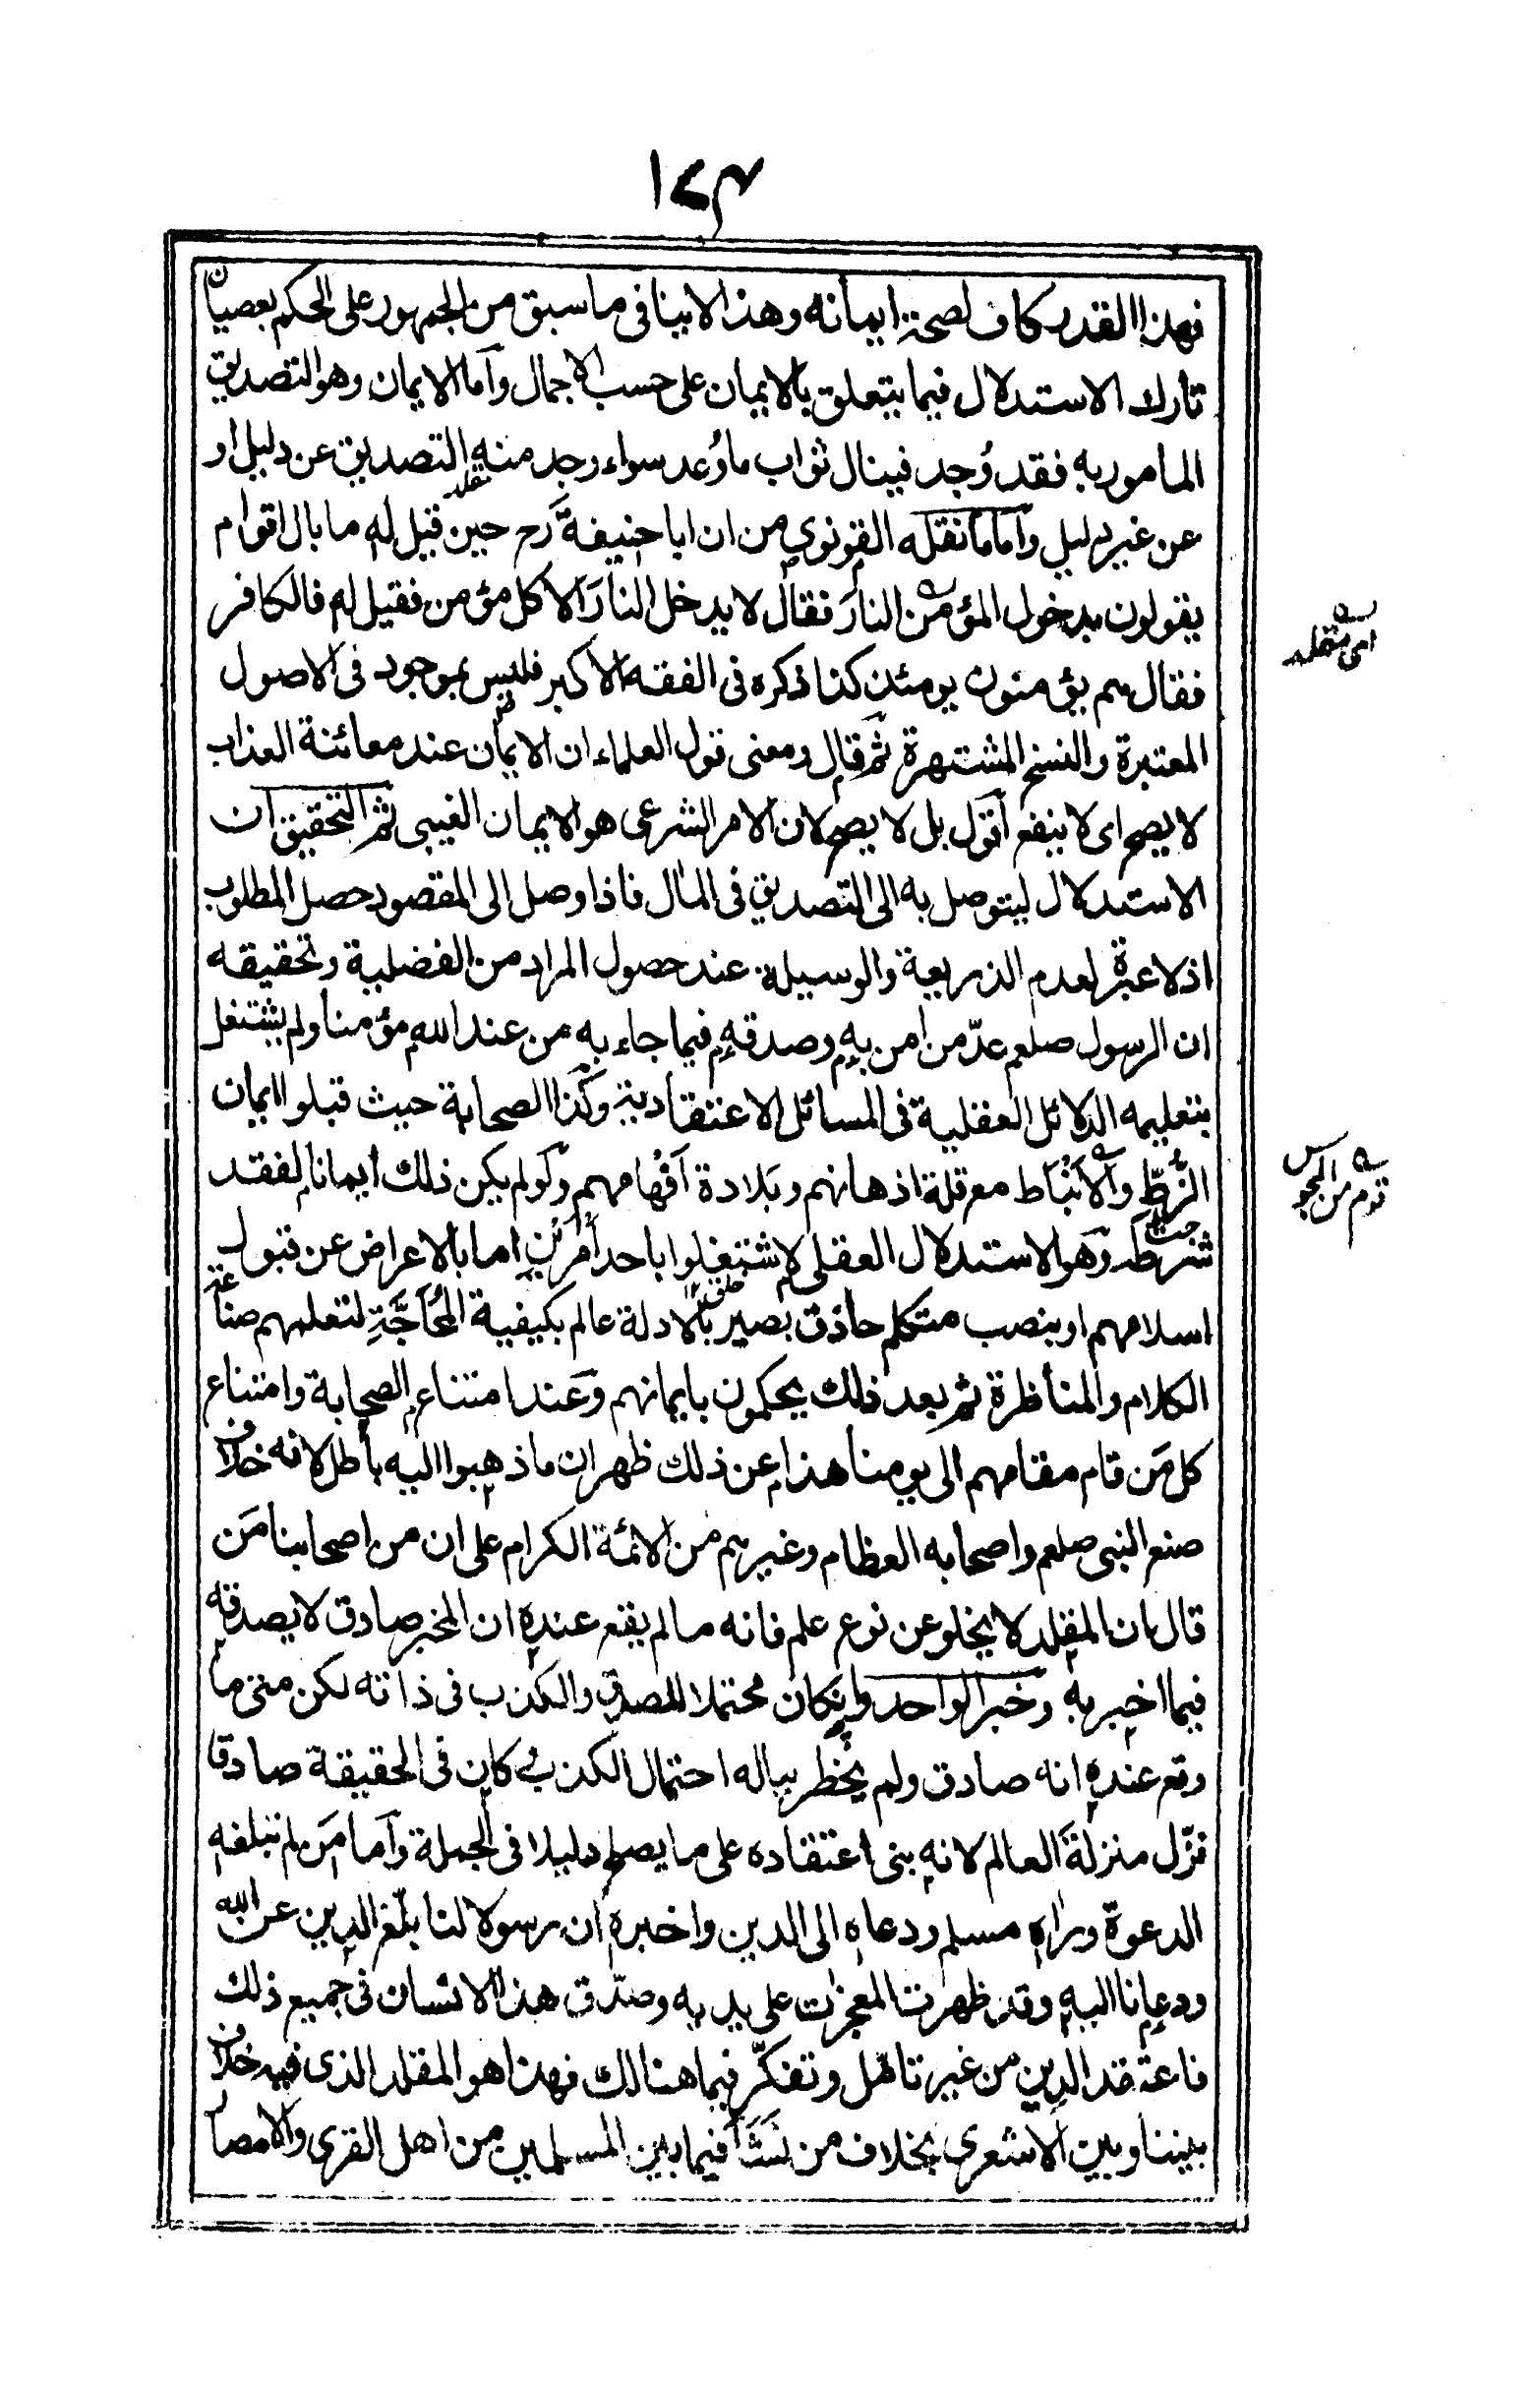 ١٧٣
فهذا القدر كاف لصحة ايمانه وهذا لا ينافى ما سبق من الجمهور على الحكم بعصيان
تارك الاستدلال فيما يتعلق بالايمان على حسب الاجمال وآما الايمان وهو التصديق
المامور به فقد وُجد فينال ثواب ما وُعد سواء وجد منه التصديق عن دليل او
عن غير دليل وآما ما نقله القونوى من ان ابا حنيفةَ رح حين قيل له ما بال اقوام
يقولون بدخول المؤمن النارَ فقال لا يدخل النارَ الا كل مؤمن فقيل له فالكافر
فقال هم يؤمنون يومئذ كذا ذكره فى الفقه الاكبر فليس بموجود فى الاصول
المعتبرة والنسخ المشتهرة ثم قال ومعنى قول العلماء ان الايمان عند معائنة العذاب
لا يصح اى لا ينفع اقول بل لا يصح لان الامر الشرعى هو الايمان الغيبى ثم التحقيق ان
الاستدلال ليتوصل به الى التصديق فى المال فاذا وصل الى المقصود حصل المطلوب
اذ لا عبرة لعدم الذريعة والوسيلة عند حصول المراد من الفضلية وتحقيقه
ان الرسول صلعم عدّ من امن به وصدقه فيما جاء به من عند الله مؤمنا ولم يشتغل
بتعليمه الدلائل العقلية فى المسائل الاعتقادية وكذا الصحابة حيث قبلوا ايمان
الزُّطِّ والاَنْبَاط مع قلة اذهانهم وبَلادة اَفْهامهم ولو لم يكن ذلك ايمانا لفقد
شرطه وهو الاستدلال العقلى لاشتغلوا باحد اَمرين اما بالاعراض عن قبول
اسلامهم او بنصب متكلم حاذق بصير بالادلة عالم بكيفية المُحَاجَّةِ لتعلمهم صناعة
الكلام والمناظرة ثم بعد ذلك يحكمون بايمانهم وعند امتناع الصحابة وامتناع
كل مَن قام مقامهم الى يومنا هذا عن ذلك ظهر ان ما ذهبوا اليه باطل لانه خلاف
صنع النبى صلعم واصحابه العظام وغيرهم من الائمة الكرام على ان من اصحابنا مَن
قال ان المقلد لا يخلو عن نوع علم فانه ما لم يقع عنده ان المخبر صادق لا يصدقه
فيما اخبر به وخبر الواحد وان كان محتملا للصدق والكذب فى ذاته لكن متى ما
وقع عنده انه صادق ولم يخطر بباله احتمال الكذب كان فى الحقيقة صادقا
نزّل منزلةَ العالم لانه بنى اعتقاده على ما يصلح دليلا فى الجملة وآما مَن لم تبلغه
الدعوة وراه مسلم ودعاه الى الدين واخبره ان رسولا لنا بلّغ الدين عن الله
ودعانا اليه وقد ظهرت المعجزات على يديه وصدّق هذا الانسان فى جميع ذلك
فاعتقد الدين من غير تامّل وتفكّر فيما هنالك فهذا هو المقلد الذى فيه خلاف
بيننا وبين الاشعرى بخلاف من نَشَأَ فيما بين المسلمين من اهل القرى والامصار
اى مقلد
قوم من المجوس